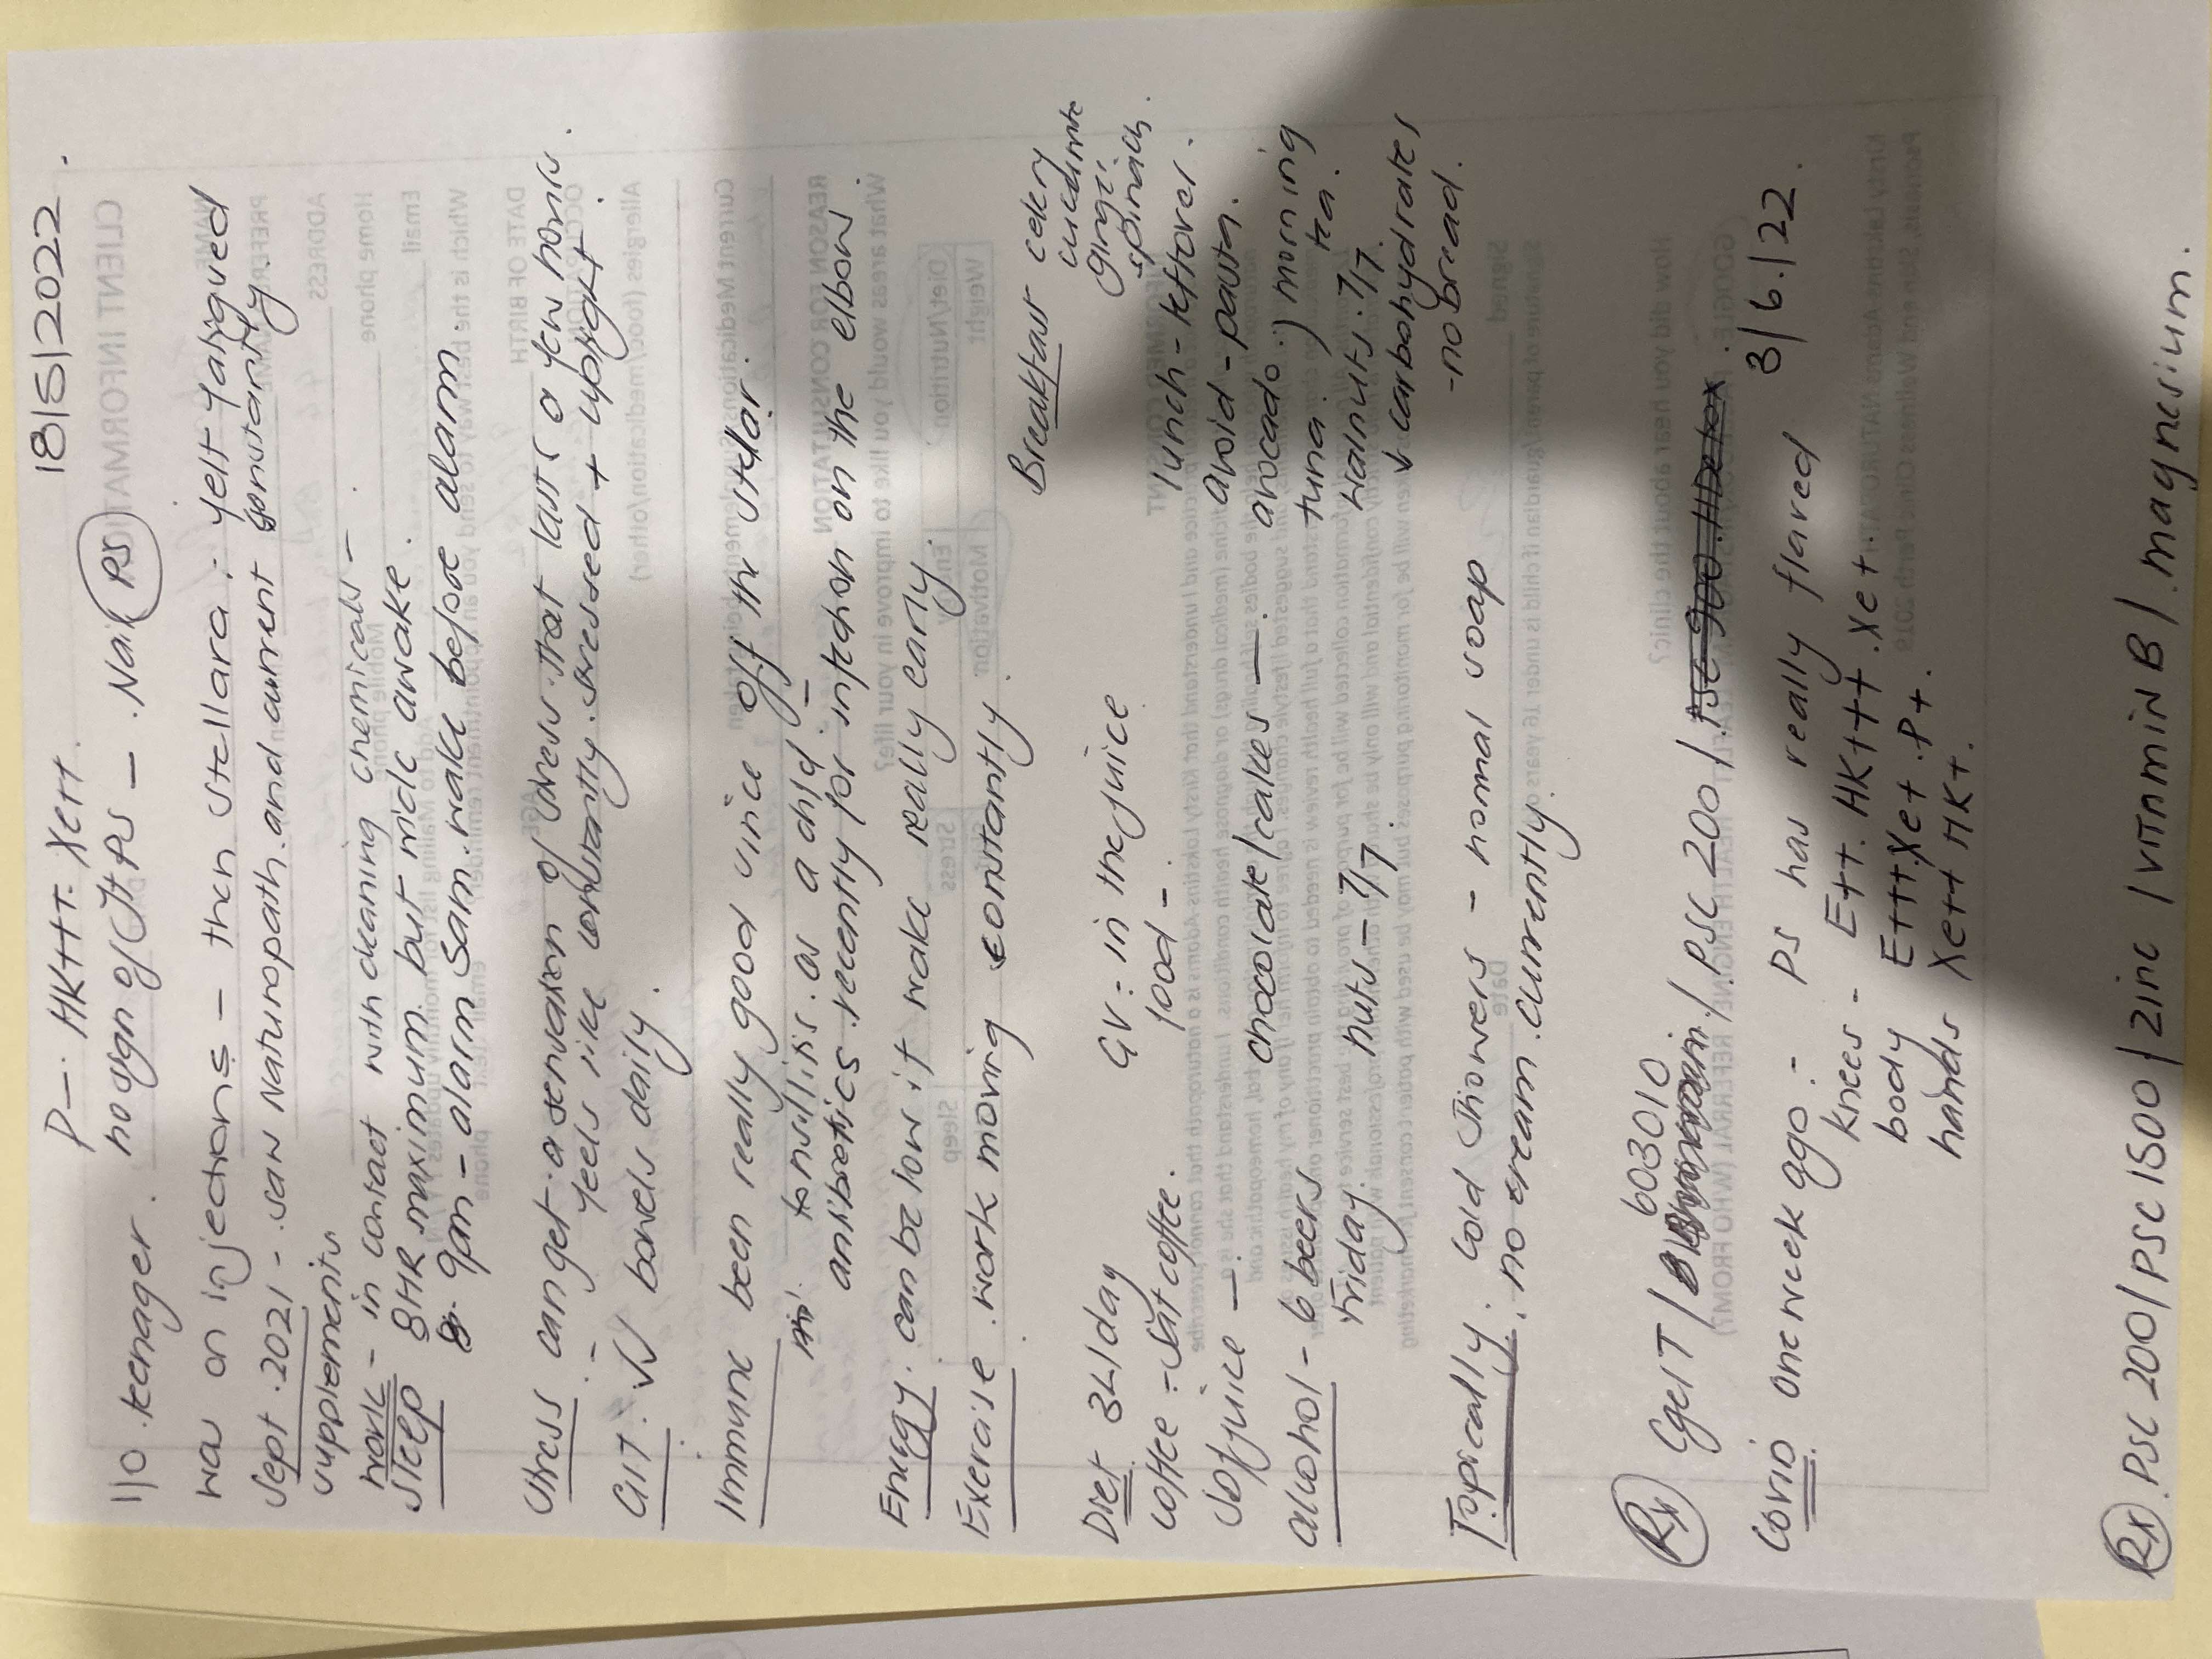 18/5/2022.
P-. HK+++. Xe++.
1/0. teenager. no sign of Jt Ps - . Nail Ps
was on injections - then Stellara: felt fatigued constantly.
Sept. 2021 - . saw Naturopath. and current
supplements
work - in contact with cleaning chemicals -
Sleep 8HR maximum. but wide awake.
9pm - alarm 5am. wake before alarm.
Stress: can get a sensation of stress that lasts a few hours.
feels like constantly. stressed + uptight.
GIT. √√ bowels daily.
Immune been really good since off the Stelar.
tonsillitis. as a child.
antibiotics recently for infection on the elbow.
Energy. can be low if wake really early.
Exercise. work moving constantly.
Breakfast celery
cucumber
ginger
spinach.
Diet 3L/day GV: in the juice
coffee - 5at coffee. food -
lunch - leftover.
Softjuice - . chocolate/cakes - .
avoid - pasta.
avocado :) morning
tuna. tea.
alcohol - 6 beers nuts - 7/7.
Friday.
walnuts. 7/7.
↓ carbohydrates
- no bread.
Topically: cold showers - normal soap
: no cream. currently.
603010
Rx CgelT / / PSC 200 /
3/6/22.
Covid one week ago: PS has really flared
knees - E++. HK+++. Xe+.
body E+++. Xe+. P+.
hands Xe++ HK+.
Rx. PSC 200 / PSC 1500 / zinc / vitnmin B / . magnesium.